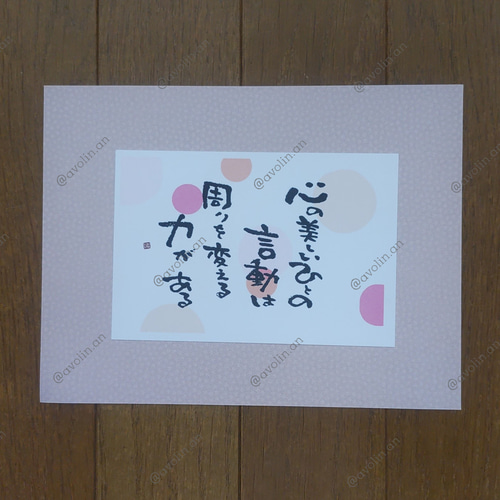 心の美しいひとの
言動は
周りを変える
力がある
@avolin.an
@avolin.an
@avolin.an
@avolin.an
@avolin.an
@avolin.an
@avolin.an
@avolin.an
@avolin.an
@avolin.an
@avolin.an